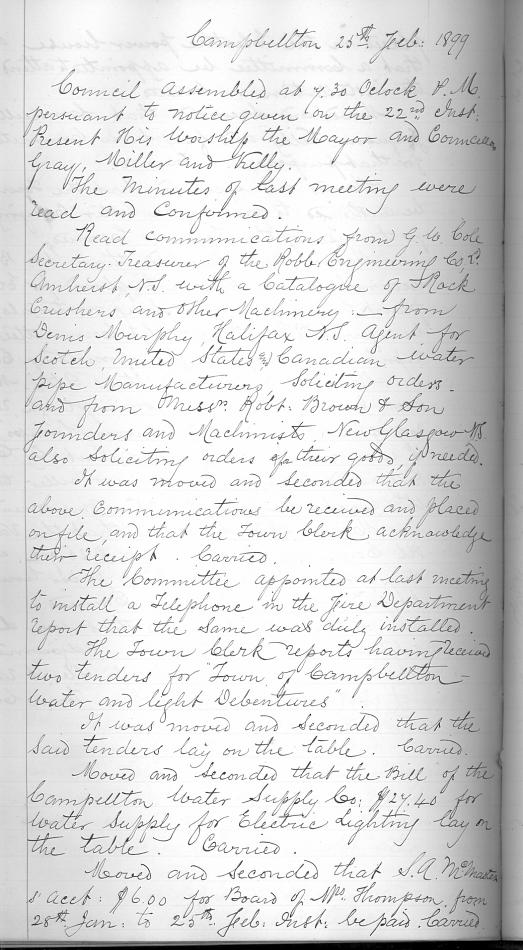 Campbellton 25th Feb: 1899
Council assembled at 7.30 Oclock P.M.
persuant to notice given on the 22nd Inst:
Present His Worship the Mayor and Councillors
Gray, Miller and Kelly.
The Minutes of last meeting were
read and Confirmed.
Read communications from G.W. Cole
Secretary-Treasurer of the Robb Engineering Co Ld.
Amherst, N.S. with a Catalogue of Rock
Crushers, and other Machinery: — from
Denis Murphy, Halifax N.S. Agent for
Scotch, United States and Canadian water
pipe Manufacturers, Soliciting orders.
and from Messrs. Robt: Brown & Son
Founders and Machinists, New Glasgow N.S.
also Soliciting orders for their goods, if needed.
It was moved and seconded that the
above Communications be received and placed
on file, and that the Town Clerk acknowledge
their receipt. Carried.
The Committee appointed at last meeting
to install a Telephone in the Fire Department
report that the same was duly installed.
The Town Clerk reports having received
two tenders for "Town of Campbellton -
Water and light Debentures".
It was moved and seconded that the
said tenders lay on the table. Carried.
Moved and seconded that the Bill of the
Campellton Water Supply Co: $27.40 for
water Supply for Electric Lighting lay on
the table. Carried.
Moved and seconded that S.A. McMaster
s' acct: $6.00 for Board of Mrs. Thompson from
28th Jan: to 25th Feb: Inst: be paid. Carried.